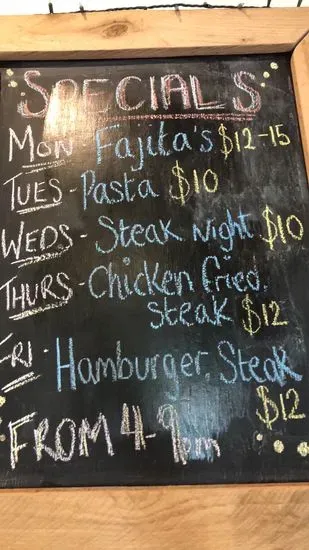 SPECIALS
MON - Fajita's $12-15
TUES - Pasta $10
WEDS - Steak Night $10
THURS - Chicken Fried
Steak $12
FRI - Hamburger Steak
$12
FROM 4-9pm